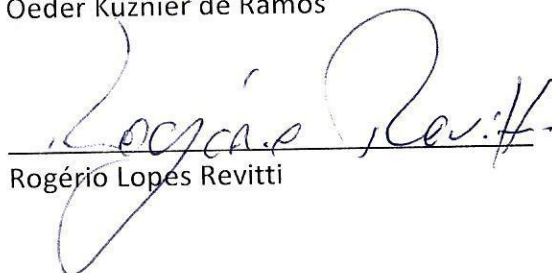 Oeder Kuznier de Ramos
Rogério Revitti
Rogério Lopes Revitti